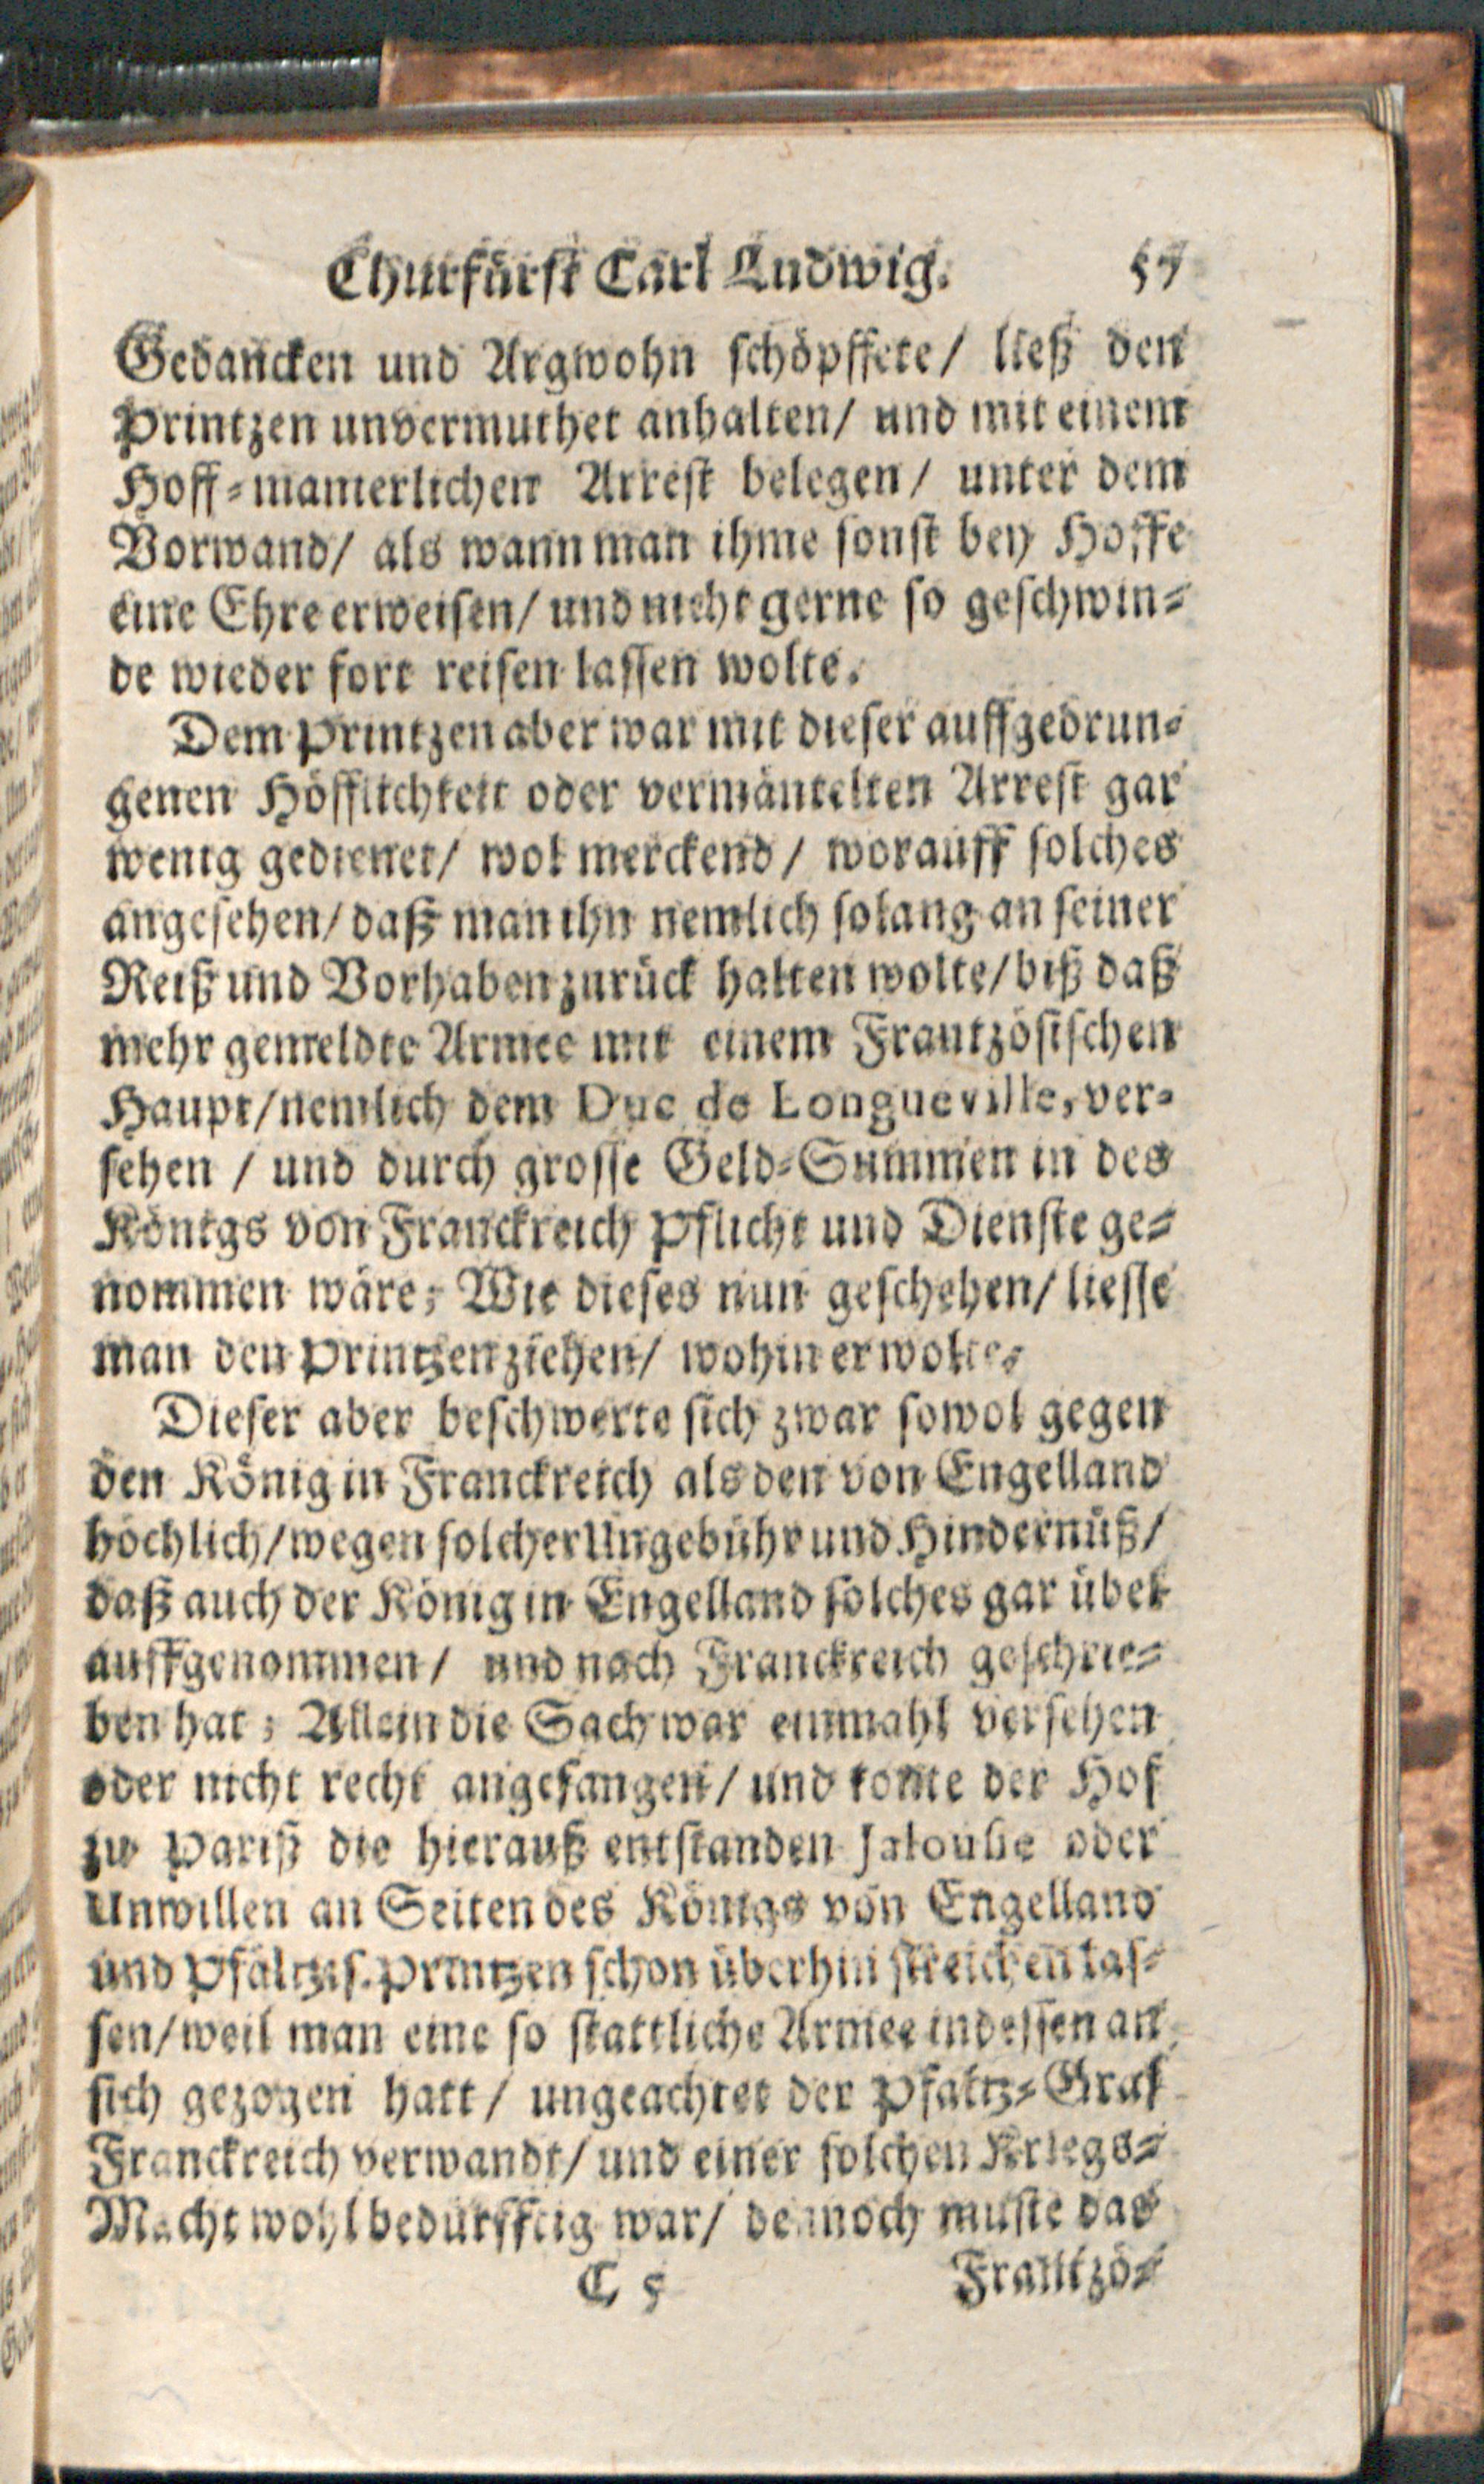 Churfürst Carl Ludwig. 57
Gedancken und Argwohn schöpffete/ ließ den
Printzen unvermuthet anhalten/ und mit einem
Hoff-manierlichen Arrest belegen/ unter dem
Vorwand/ als wann man ihme sonst bey Hoffe
eine Ehre erweisen/ und nicht gerne so geschwin-
de wieder fort reisen lassen wolte.
Dem Printzen aber war mit dieser auffgedrun-
genen Höfflichkeit oder vermäntelten Arrest gar
wenig gedienet/ wol merckend/ worauff solches
angesehen/ daß man ihn nemlich solang an seiner
Reiß und Vorhaben zurück halten wolte/ biß daß
mehr gemeldte Armee mit einem Frantzösischen
Haupt/ nemlich dem Duc de Longueville, ver-
sehen / und durch grosse Geld-Summen in des
Königs von Franckreich Pflicht und Dienste ge-
nommen wäre; Wie dieses nun geschehen/ liesse
man den Printzen ziehen/ wohin er wolte.
Dieser aber beschwerte sich zwar sowol gegen
den König in Franckreich als den von Engelland
höchlich/ wegen solcher Ungebühr und Hindernüß/
daß auch der König in Engelland solches gar übel
auffgenommen/ und nach Franckreich geschrie-
ben hat; Allein die Sach war einmahl versehen
oder nicht recht angefangen/ und konte der Hof
zu Pariß die hierauß entstanden Jalousie oder
Unwillen an Seiten des Königs von Engelland
und Pfältzis. Printzen schon überhin streichen las-
sen/ weil man eine so stattliche Armee indessen an
sich gezogen hatt/ ungeachtet der Pfaltz-Graf
Franckreich verwandt/ und einer solchen Kriegs-
Macht wohl bedürfftig war/ dennoch muste das
C 5 Frantzö-